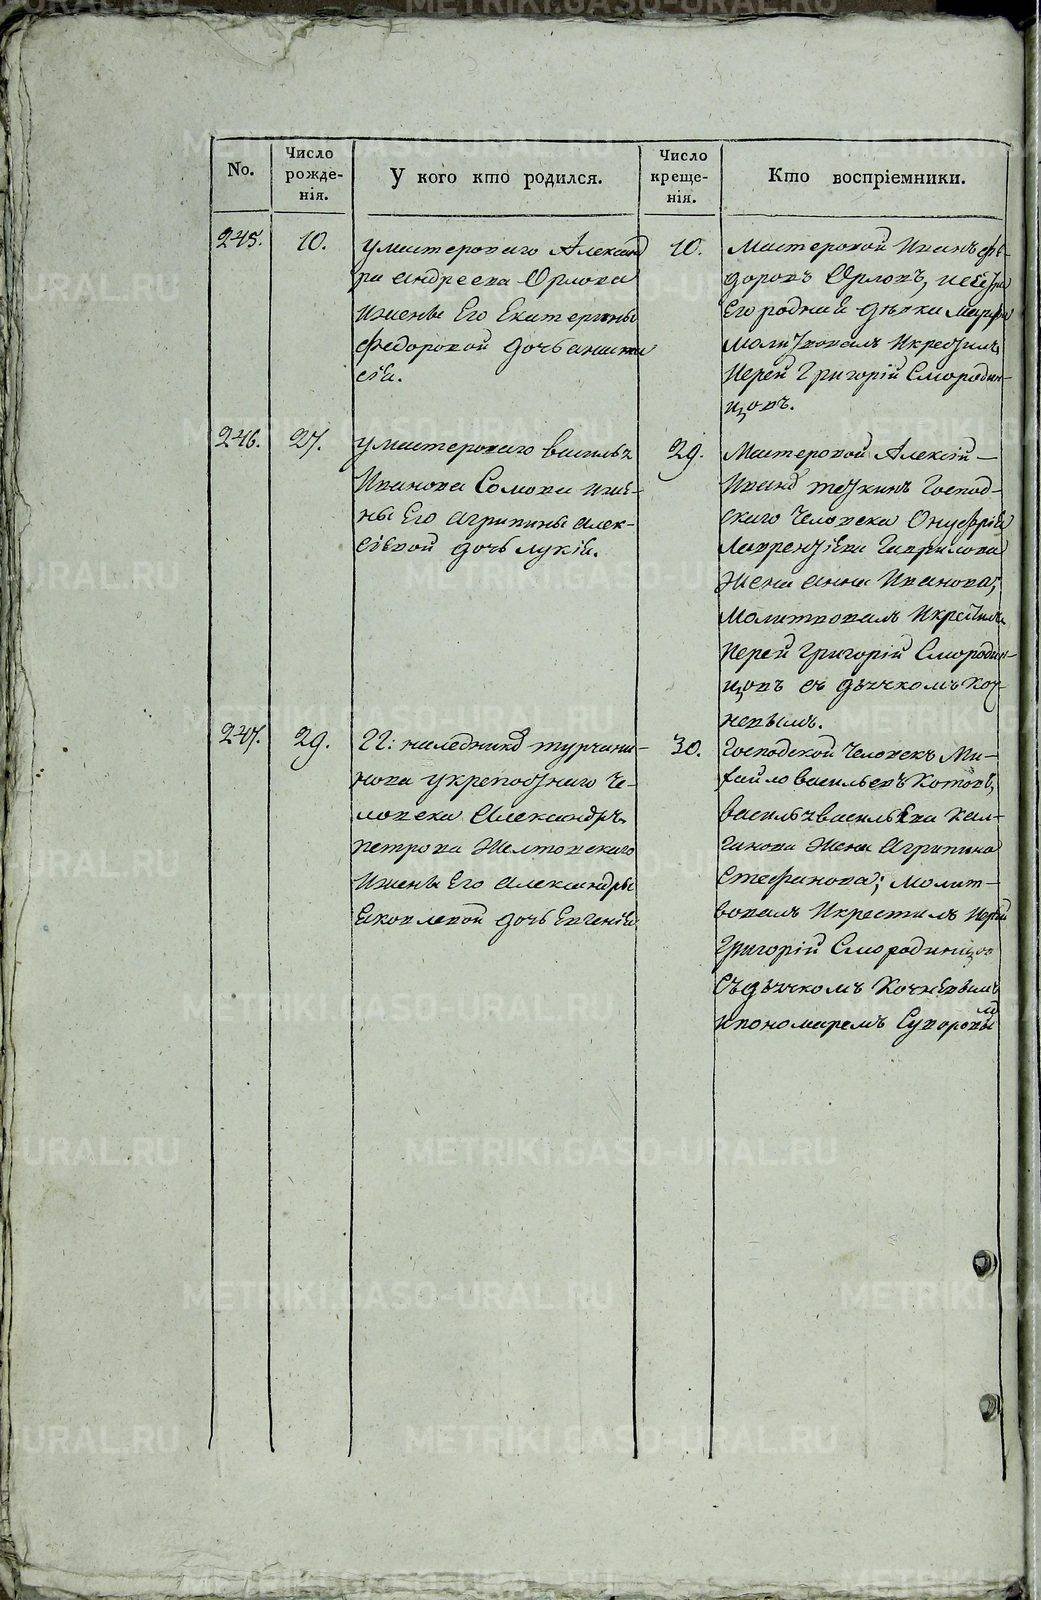 No.
Число рожде-
нія.
У кого кто родился.
Число креще-
нія.
Кто воспріемники.
245.
10.
умастероваго Александ
ра Андреева Орлова
ижены Его Екатерины
Федоровой дочь Анаста
сіа.
10.
Мастеровой Иванъ Фе-
доровъ Орловъ,
Его родная дѣвка Марфа
молитвовалъ Икрестилъ
Иерей Григорій Смородин-
цовъ.
246.
27.
умастероваго Василья
Иванова Сомова иже-
ны Его Агрипины Алек-
сѣевой дочь Лукія.
29.
Мастеровой Алексій
Иванъ Господ-
скаго Человека Онуфрія
Лаврентіева Гаврилова
Жена Анна Иванова;
Молитвовалъ Икрестилъ
Иерей Григорій Смородин-
цовъ съ дьячкомъ Коч-
невымъ.
247.
29.
ГГ: наследниковъ Турчани-
нова укрепостнаго Че-
ловека Александръ
Петрова Желтовскаго
Ижены Его Александры
Яковлевой дочь Евгенія.
30.
Господской Человекъ Ми-
хайло Васильевъ Котовъ,
Василья Васильева Кал-
ганова Жена Агрипина
Стефанова; Молит-
вовалъ Икрестилъ Иерей
Григорій Смородинцов
Съдьячкомъ Кочневымъ
ипономаремъ Суворовы
мъ
METRIKI.GASO-URAL.RU